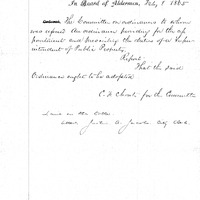 In Board of Aldermen, Feby, 1 1865
The Committee on ordinances to whom
was refered the ordinance providing for the ap
pointment and prescribing the duties of a Super-
intendent of Public Property,
Report
That the said
Ordinance ought to be adopted
C. H. for the Committee
Laid on the table
Attest